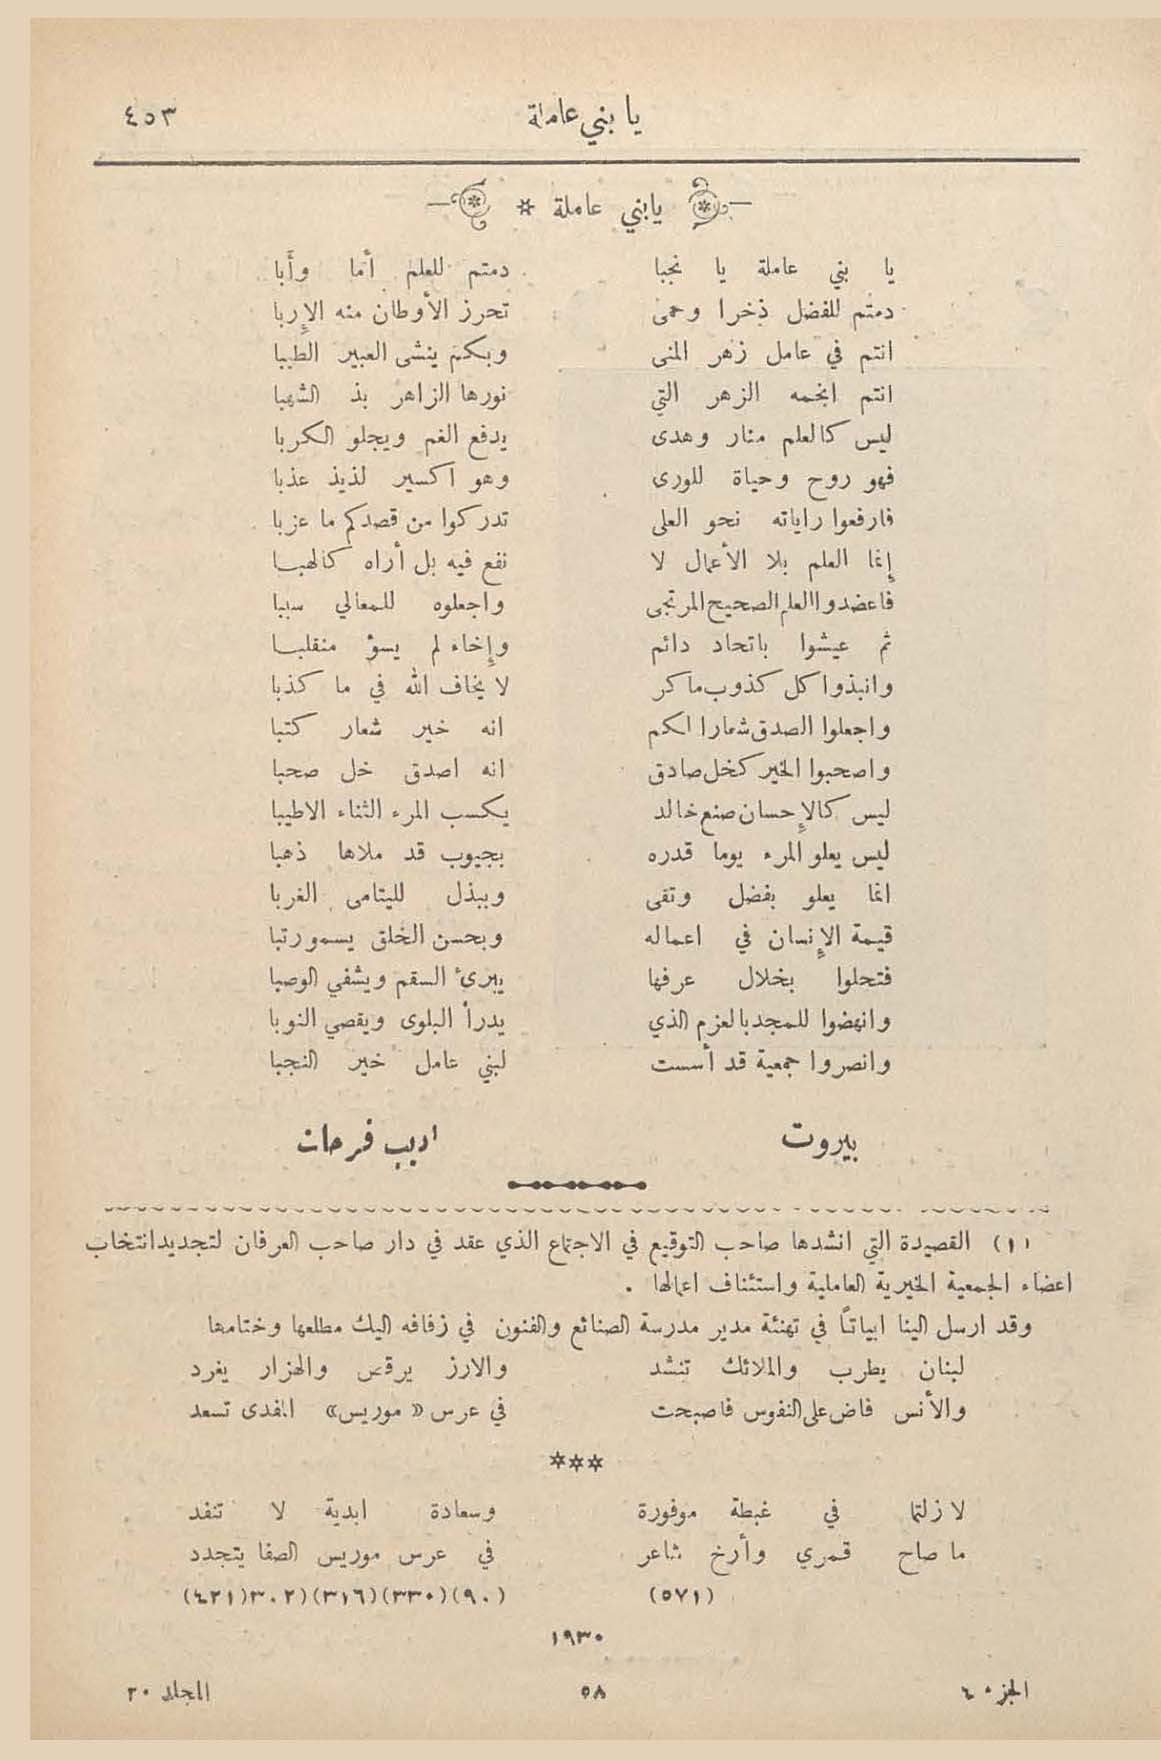 يا بني عاملة ٤٥٣
يابني عاملة *
يا بني عاملة يا نجبا دمتم للعلم أما وأَبا
دمتم للفضل ذخرا وحمى تحرز الأوطان منه الإربا
انتم في عامل زهر المنى وبكم ينشى العبير الطيبا
انتم انجمه الزهر التي نورها الزاهر بذ الشهبا
ليس كالعلم منار وهدى يدفع الغم ويجلو الكربا
فهو روح وحياة للورى وهو اكسير لذيذ عذبا
فارفعوا راياته نحو العلى تدركوا من قصدكم ما عزبا
إنما العلم بلا الأعمال لا نفع فيه بل أراه كالهبا
فاعضدوا العلم الصحيح المرتجى واجعلوه للمعالي سببا
ثم عيشوا باتحاد دائم وإخاء لم يسؤ منقلبا
وانبذوا كل كذوب ماكر لا يخاف الله في ما كذبا
واجعلوا الصدق شعارا لكم انه خير شعار كتبا
واصحبوا الخير كخل صادق انه اصدق خل صحبا
ليس كالإحسان صنع خالد يكسب المرء الثناء الاطيبا
ليس يعلو المرء يوما قدره بجيوب قد ملاها ذهبا
انما يعلو بفضل وتقى وببذل لليتامى الغربا
قيمة الإنسان في اعماله وبحسن الخلق يسمو رتبا
فتحلوا بخلال عرفها يبرئ السقم ويشفي الوصبا
وانهضوا للمجد بالعزم الذي يدرأ البلوى ويقصي النوبا
وانصروا جمعية قد أسست لبني عامل خير النجبا
بيروت اديب فرحات
(١) القصيدة التي انشدها صاحب التوقيع في الاجتماع الذي عقد في دار صاحب العرفان لتجديد انتخاب
اعضاء الجمعية الخيرية العاملية واستئناف اعمالها .
وقد ارسل الينا ابياتاً في تهنئة مدير مدرسة الصنائع والفنون في زفافه اليك مطلعها وختامها
لبنان يطرب والملائك تنشد والارز يرقص والهزار يغرد
والأنس فاض على النفوس فاصبحت في عرس « موريس» المفدى تسعد
***
لا زلتما في غبطة موفورة وسعادة ابدية لا تنفد
ما صاح قمري وأرخ شاعر في عرس موريس الصفا يتجدد
(٥٧١) (٩٠)(٣٣٠)(٣١٦)(٣٠٢)(٤٢١)
١٩٣٠
الجزء ٤ ٥٨ المجلد ٢٠